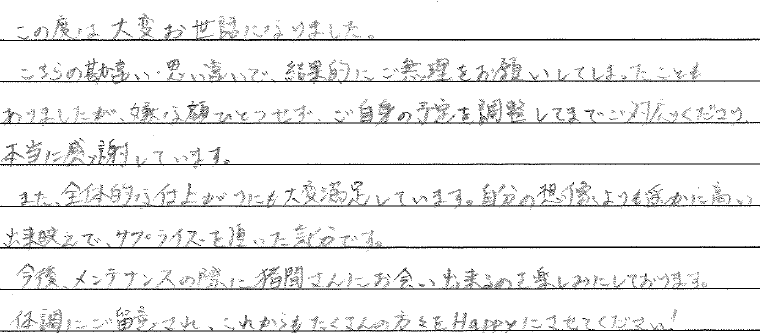 この度は大変お世話になりました。
こちらの勘違い・思い違いで、結果的にご無理をお願いしてしまったことも
ありましたが、嫌な顔ひとつせず、ご自身の予定を調整してまでご対応くださり、
本当に感謝しています。
また、全体的な仕上がりにも大変満足しています。自分の想像よりも遥かに高い
出来映えで、サプライズを頂いた気分です。
今後、メンテナンスの際に猪間さんにお会い出来るのを楽しみにしております。
体調にご留意され、これからもたくさんの方々をHappyにさせてください!